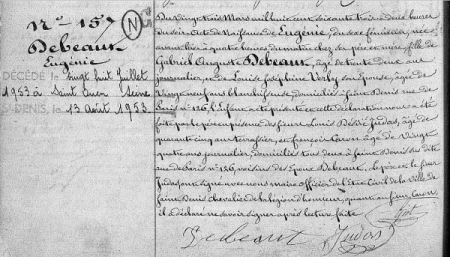 N° 157
N
Debeaux
Eugénie
DÉCÉDÉ le vingt huit Juillet
1953 à Saint Ouen Seine
S-DENIS, le 13 Août 1953
Du vingt trois Mars mil huit cent soixante trois à deux heures
du soir. Acte de Naissance de Eugénie, du sexe féminin, née
à quatre heures du matin chez ses père et mère, fille de
Gabriel Auguste Debeaux, âgé de trente deux ans
journalier, et de Louise Joséphine son épouse, âgée de
vingt neuf ans blanchisseuse, domiciliés à Saint Denis rue de
Paris n° 136. L'Enfant a été présenté et cette déclaration nous a été
faite par le père en présence des sieurs Louis Désiré Judas, âgé de
quarante cinq ans terrassier, et François Caron âgé de Vingt
quatre ans journalier, domiciliés tous deux à Saint Denis dit
rue de Paris n° 136, voisins des Epoux Debeaux. Le père et le sieur
Judas ont signé avec nous maire officier de l'Etat Civil de la Ville de
Saint Denis chevalier de la légion d'honneur, quant au sieur Caron
il a déclaré ne savoir signer après lecture faite
Debeaux Judas